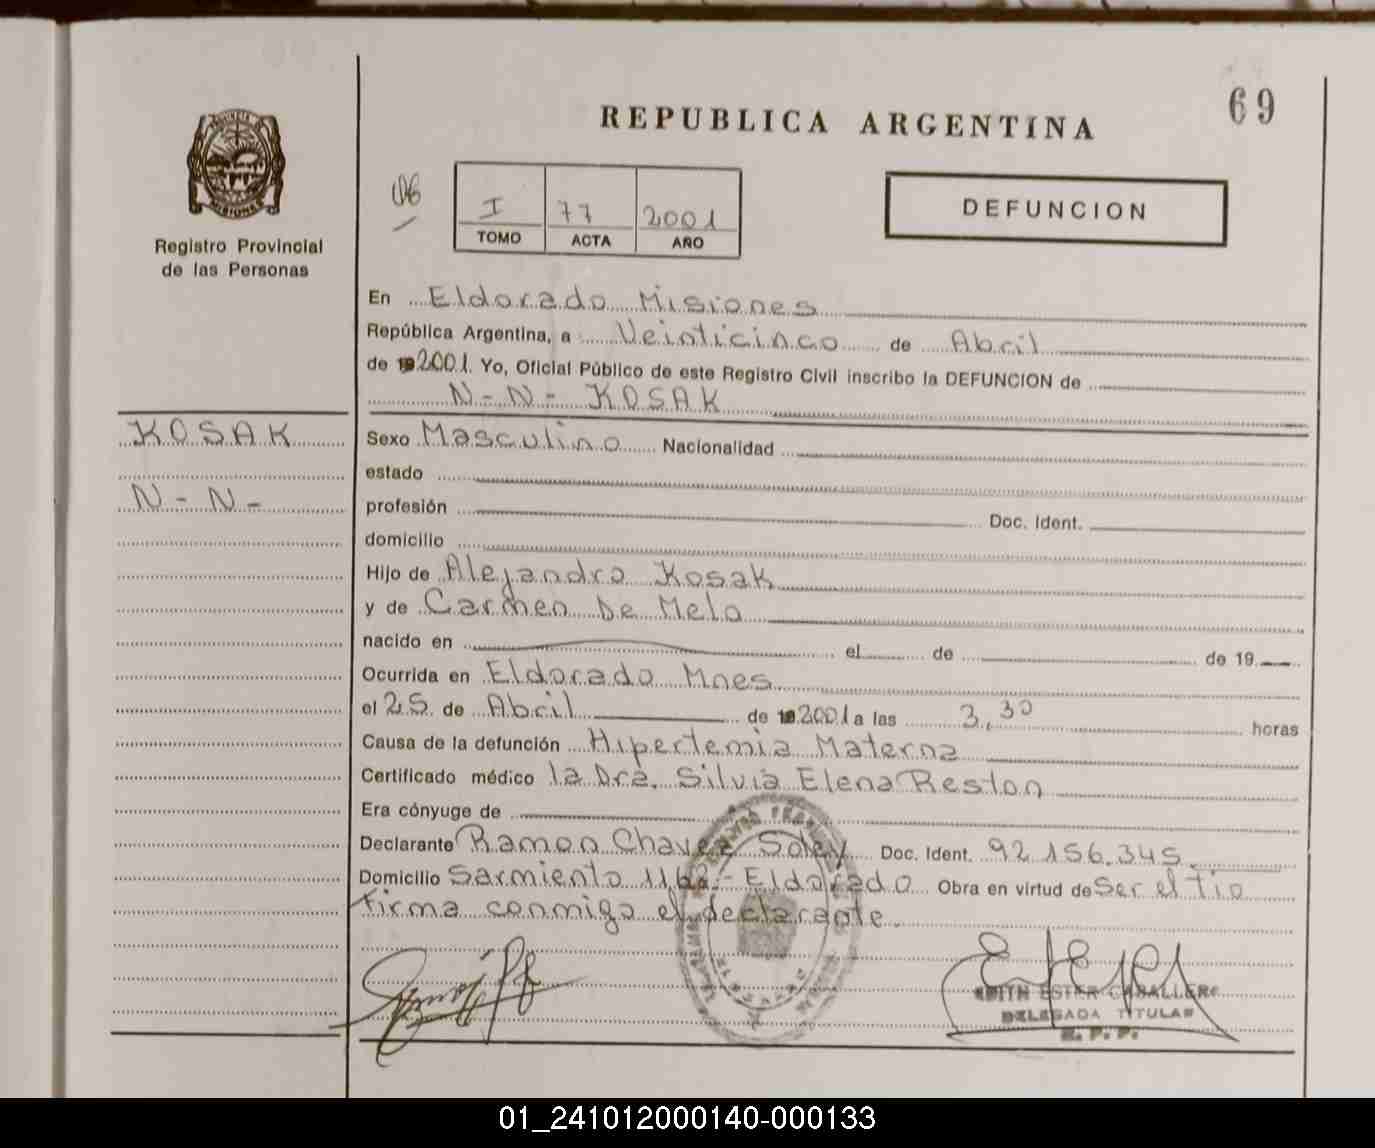 69
REPUBLICA ARGENTINA
PROVINCIA DE
MISIONES
Registro Provincial
de las Personas
I 77 2001
TOMO ACTA AÑO
DEFUNCION
En Eldorado Misiones
República Argentina, a Veinticinco de Abril
de 192001. Yo, Oficial Público de este Registro Civil inscribo la DEFUNCION de
N-N- KOSAK
KOSAK
N-N-
Sexo Masculino Nacionalidad
estado
profesión Doc. Ident.
domicilio
Hijo de Alejandro Kosak
y de Carmen De Melo
nacido en el de de 19
Ocurrida en Eldorado Mnes
el 25 de Abril de 192001 a las 3,30 horas
Causa de la defunción Hipertemia Materna
Certificado médico la Dra. Silvia Elena Reston
Era cónyuge de
Declarante Ramon Chavez Soley Doc. Ident. 92.156.345.
Domicilio Sarmiento - Eldorado Obra en virtud de Ser el tio
firma conmigo el declarante.
EDITH ESTER CABALLERO
DELEGADA TITULAR
R. P. P.
01_241012000140-000133